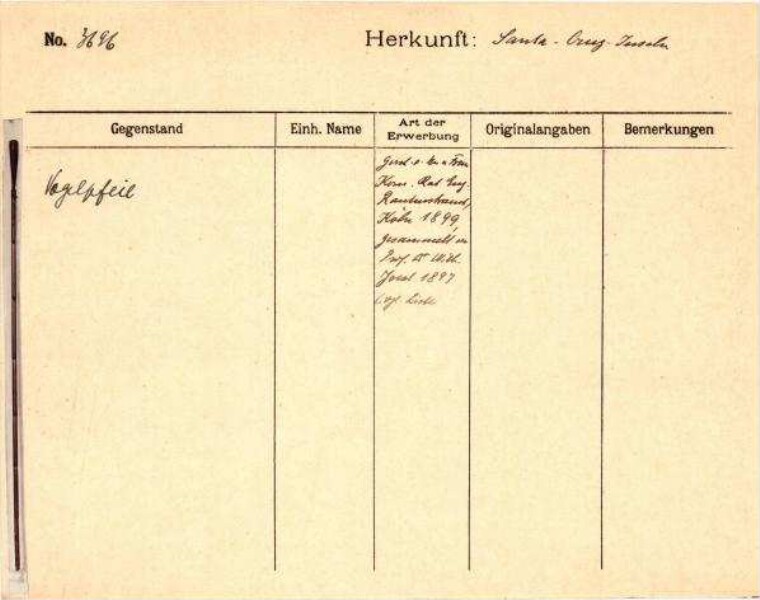 No. 3696 Herkunft: Santa-Cruz-Inseln
Gegenstand
Einh. Name
Art der
Erwerbung
Originalangaben
Bemerkungen
Vogelpfeil
Gesch. v. Hn u Frau
Kom. Rat Eug.
Rautenstrauch,
Köln 1899,
gesammelt v.
Prof. Dr Wilh.
Joest 1897
(vgl. Liste